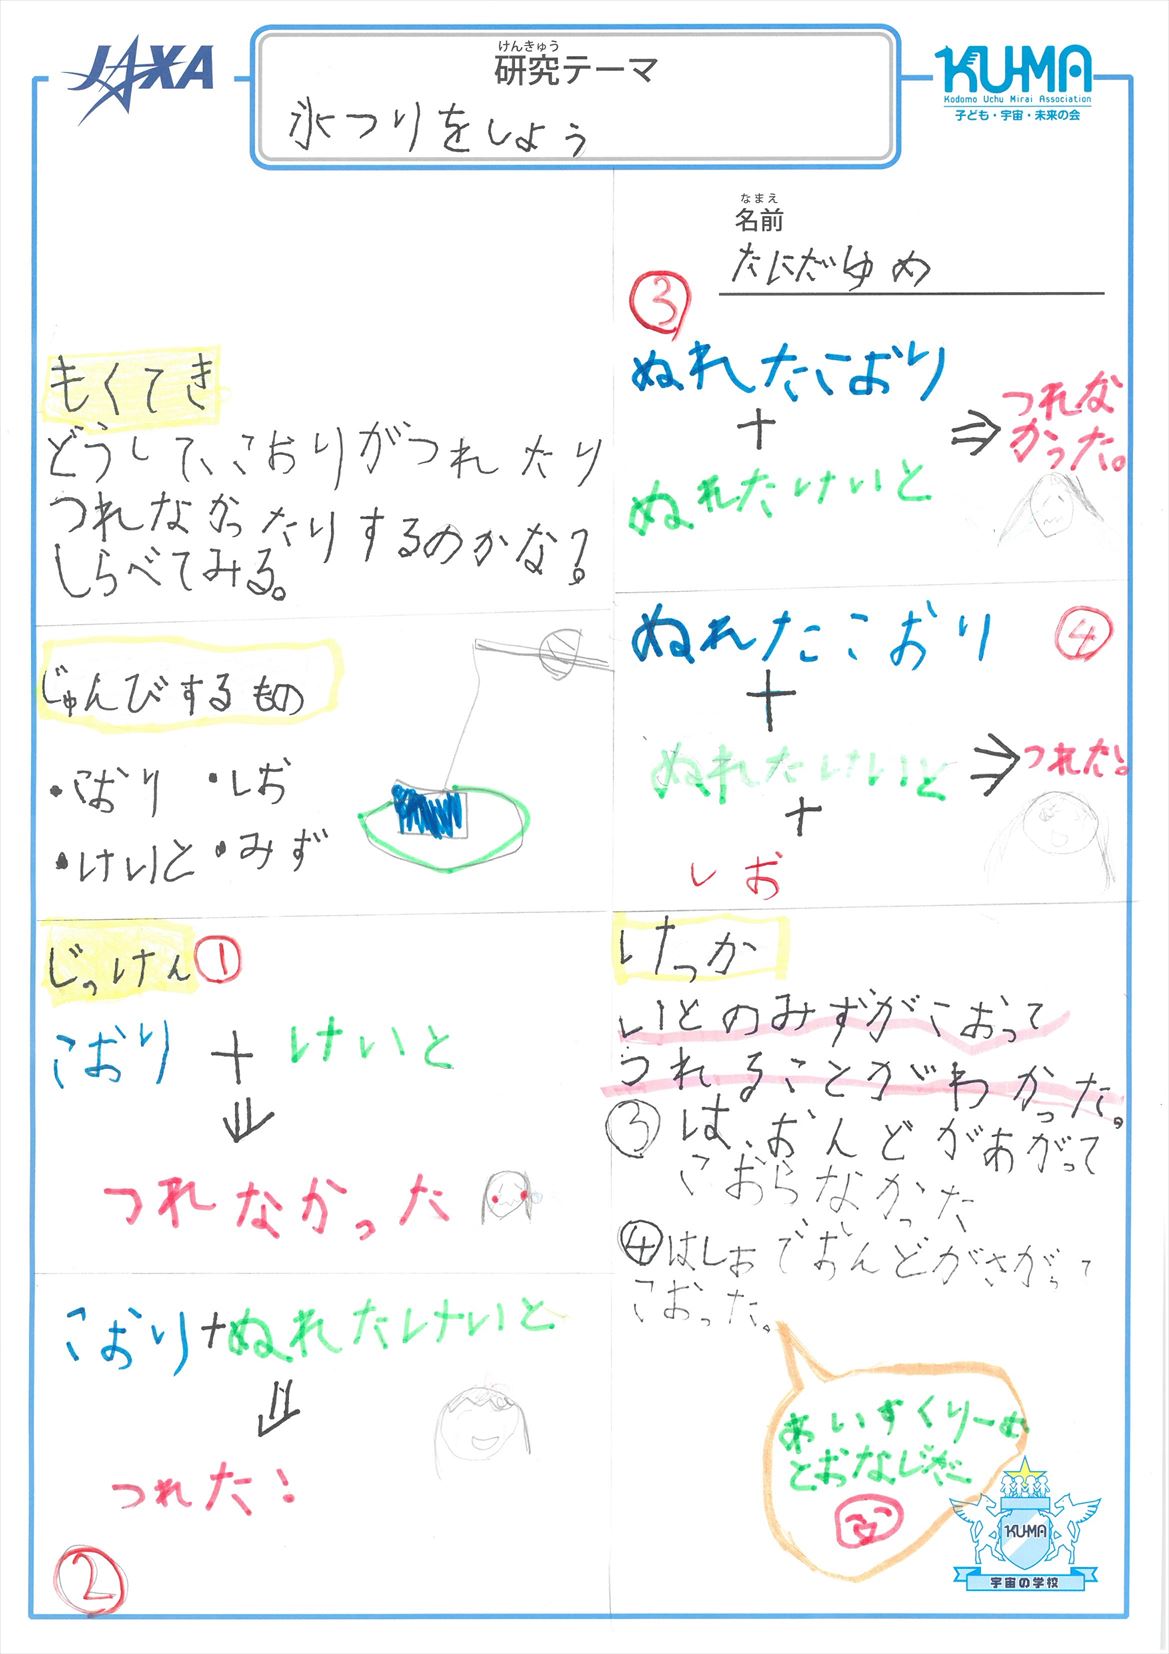 JAXA
けんきゅう
研究テーマ
氷つりをしよう
KU-MA
Kodomo Uchu Mirai Association
子ども・宇宙・未来の会
なまえ
名前
たにだゆめ
もくてき
どうして、こおりがつれたり
つれなかったりするのかな?
しらべてみる。
じゅんびするもの
・こおり ・しお
・けいと ・みず
じっけん ①
こおり + けいと
⇓
つれなかった
こおり+ぬれたけいと
⇓
つれた!
②
③
ぬれたこおり
+
ぬれたけいと
⇒ つれな
かった。
ぬれたこおり ④
+
ぬれたけいと ⇒ つれた!
+
しお
けっか
いとのみずがこおって
つれることがわかった。
③は、おんどがあがって
こおらなかった
④はしおでおんどがさがって
こおった。
あいすくりーむ
とおなじだ
KU-MA
宇宙の学校